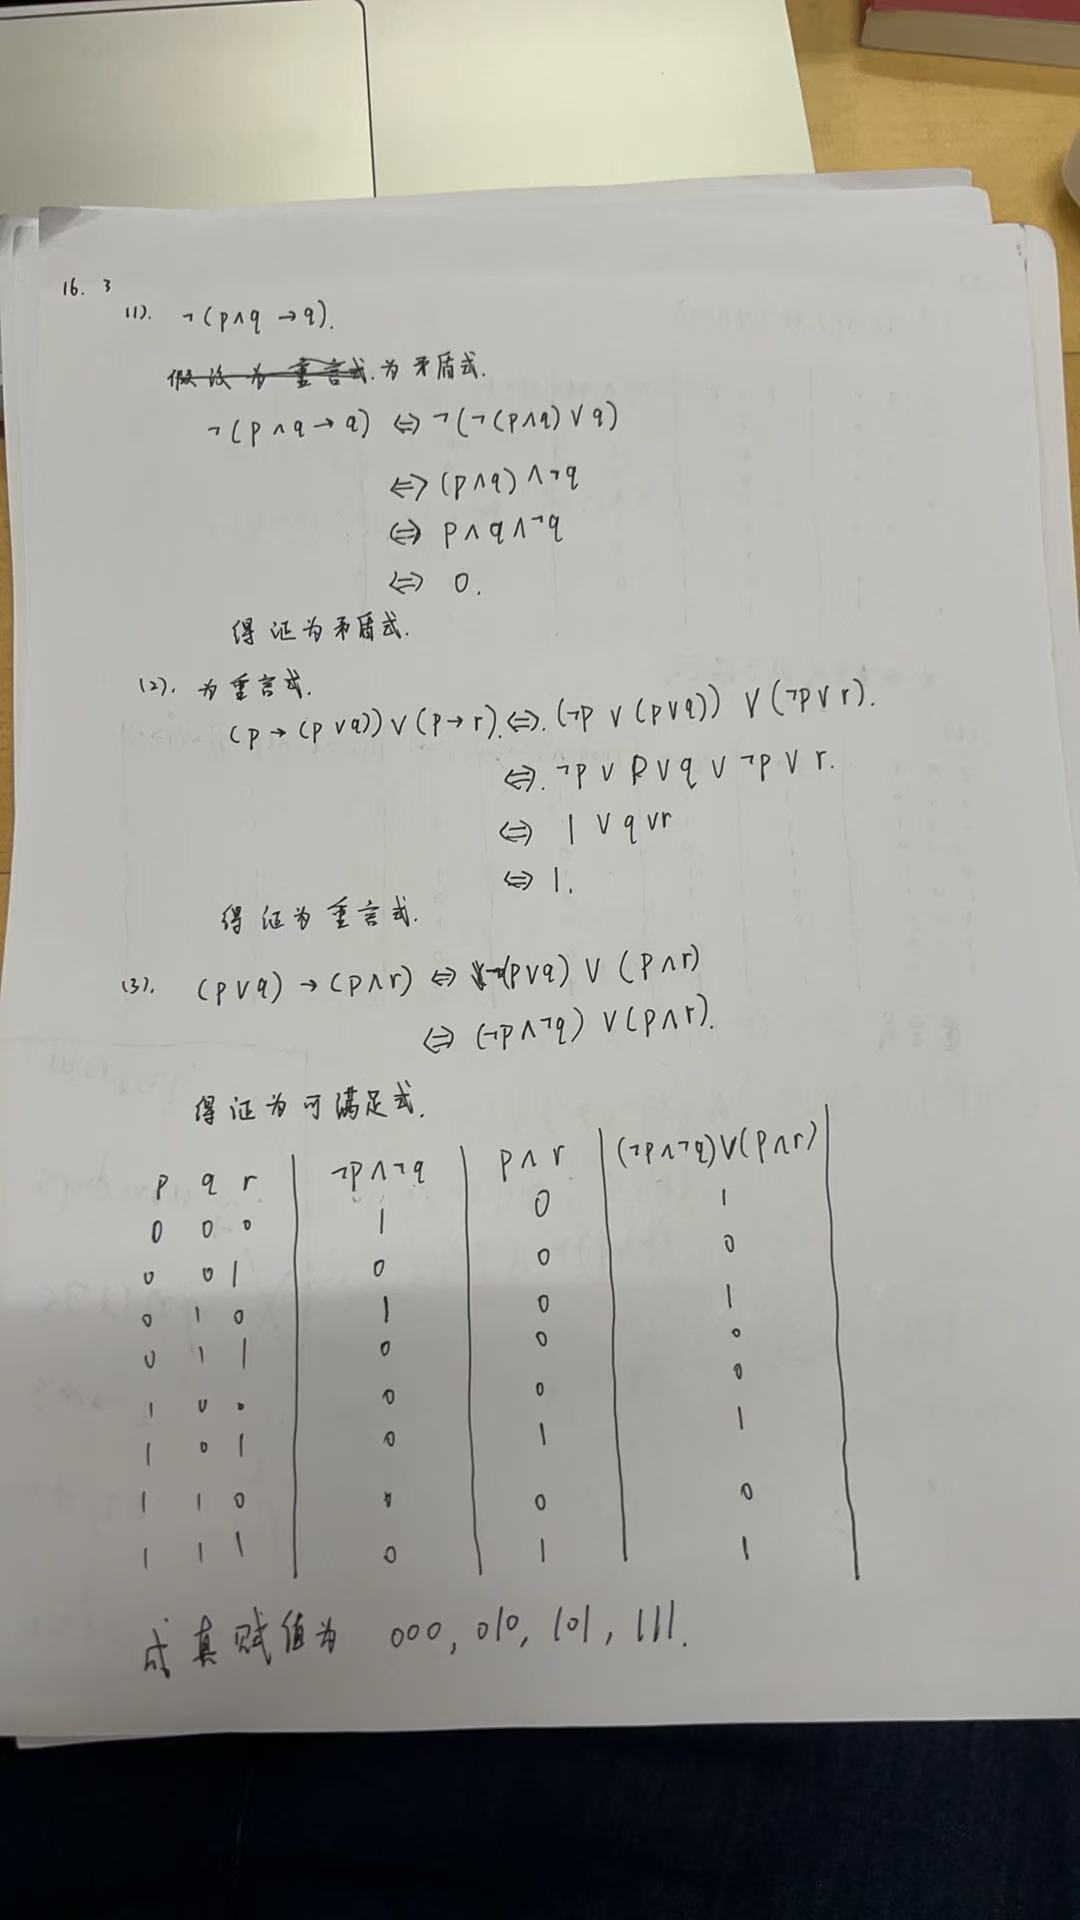 16. 3
(1). ¬(p∧q →q).
假设为重言式.为矛盾式.
¬(p∧q→q) ⇔ ¬(¬(p∧q)∨q)
⇔ (p∧q)∧¬q
⇔ p∧q∧¬q
⇔ 0.
得证为矛盾式.
(2). 为重言式.
(p→(p∨q))∨(p→r).⇔.(¬p∨(p∨q)) ∨(¬p∨r).
⇔.¬p∨p∨q∨¬p∨r.
⇔ 1∨q∨r
⇔ 1.
得证为重言式.
(3). (p∨q)→(p∧r) ⇔ ¬(p∨q)∨(p∧r)
⇔ (¬p∧¬q)∨(p∧r).
得证为可满足式.
p q r ¬p∧¬q p∧r (¬p∧¬q)∨(p∧r)
0 0 0 1 0 1
0 0 1 0 0 0
0 1 0 1 0 1
0 1 1 0 0 0
1 0 0 0 0 0
1 0 1 0 1 1
1 1 0 0 0 0
1 1 1 0 1 1
成真赋值为 000, 010, 101, 111.